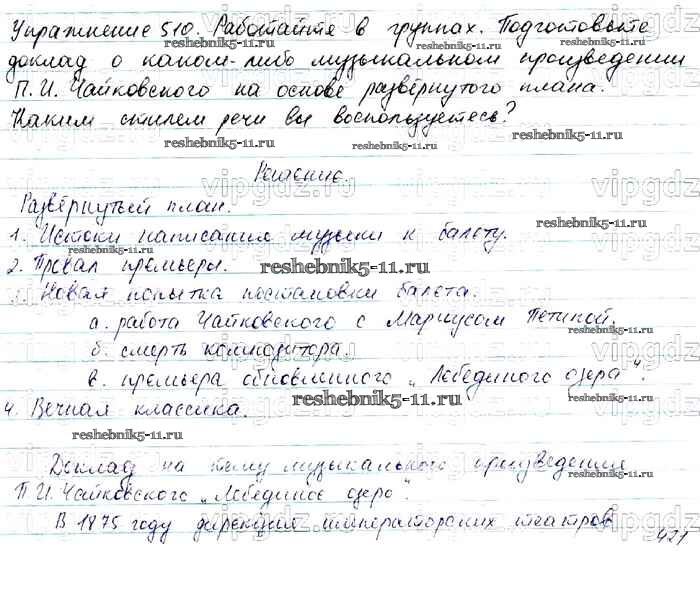 Упражнение 510. Работайте в группах. Подготовьте
доклад о каком-либо музыкальном произведении
П.И. Чайковского на основе развёрнутого плана.
Каким стилем речи вы воспользуетесь?
reshebnik5-11.ru
Решение.
Развёрнутый план.
1. Истоки написания музыки к балету.
2. Провал премьеры.
3. Новая попытка постановки балета.
а. работа Чайковского с Мариусом Петипой.
б. смерть композитора.
в. премьера обновленного „Лебединого озера".
4. Вечная классика.
reshebnik5-11.ru
Доклад на тему музыкального произведения
П.И. Чайковского „Лебединое озеро".
В 1875 году дирекция императорских театров
421
vipgdz